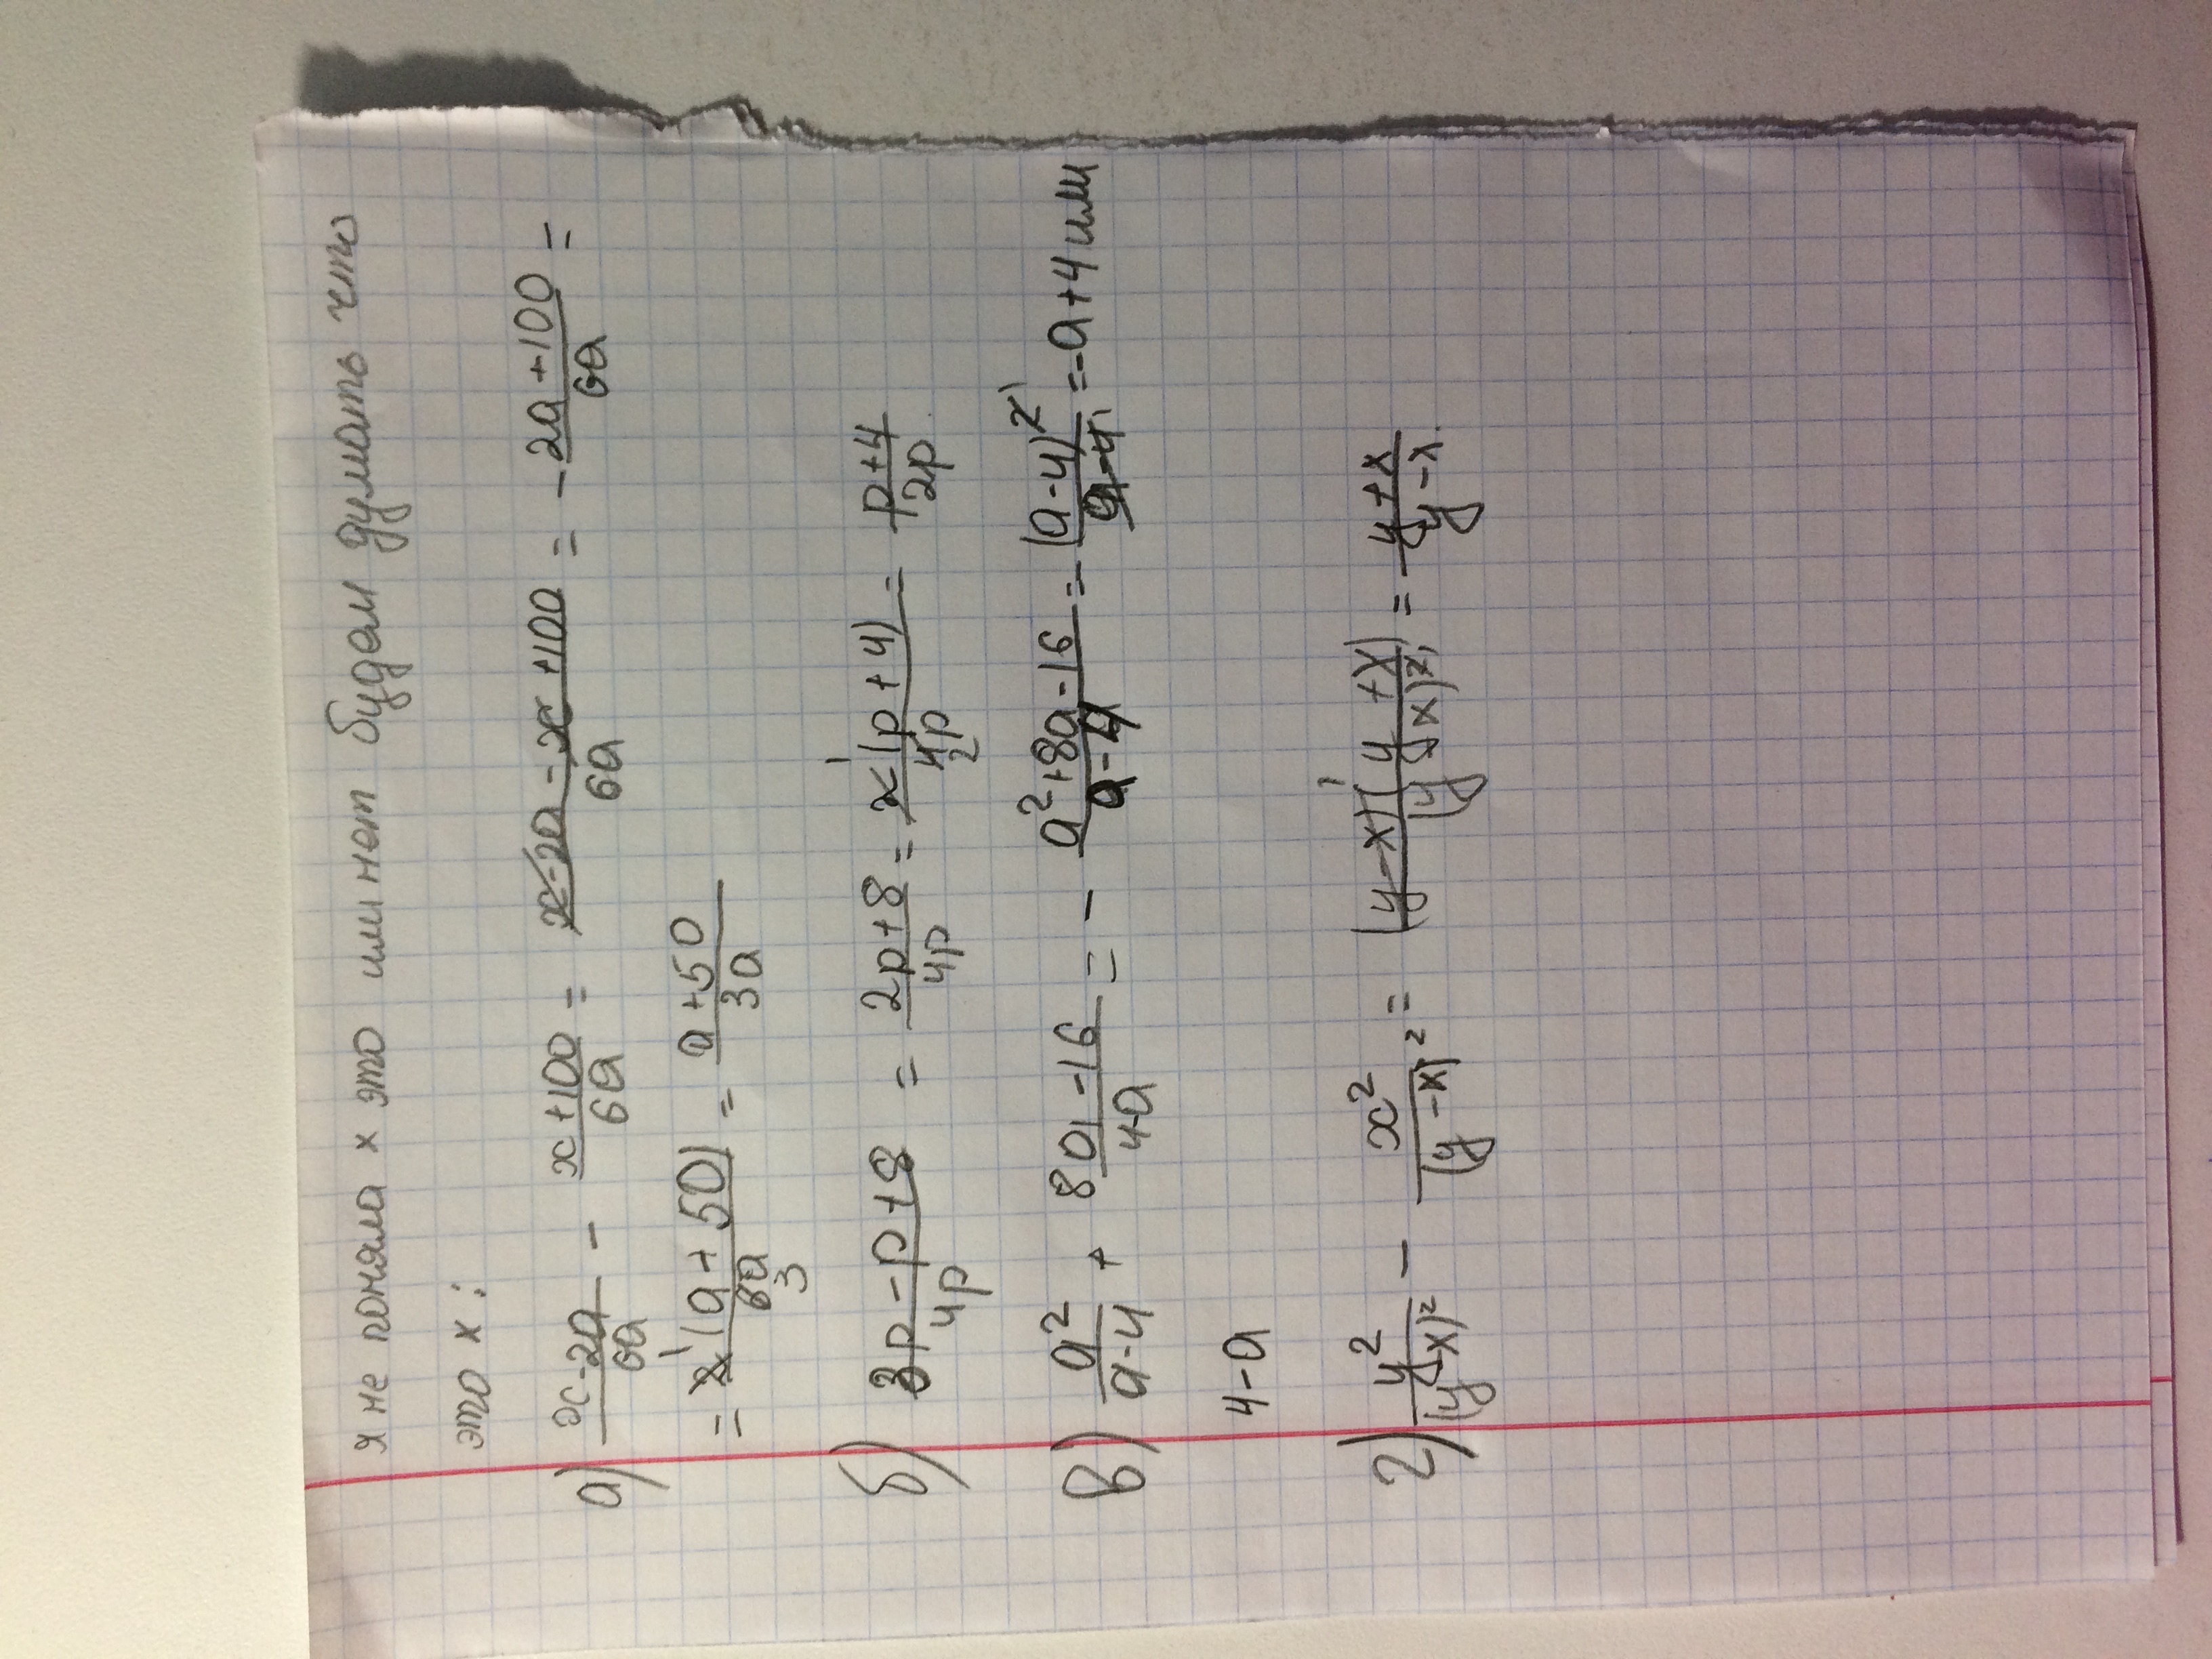 я не поняла x это или нет будем думать что
это x:
а) (x-2a)/(6a) - (x+100)/(6a) = (x-2a-x+100)/(6a) = - (2a+100)/(6a) =
= (2¹(a+50))/(6a 3) = (a+50)/(3a)
б) (3p-p+8)/(4p) = (2p+8)/(4p) = (2¹(p+4))/(4p 2) = (p+4)/(2p)
в) a²/(a-4) + (8a-16)/(4-a) = - (a²+8a-16)/(a-4) = - (a-4)²¹/(a-4₁) = -a+4 или
4-a
г) y²/(y-x)² - x²/(y-x)² = ((y-x)¹(y+x))/(y-x)²₁ = (y+x)/(y-x).